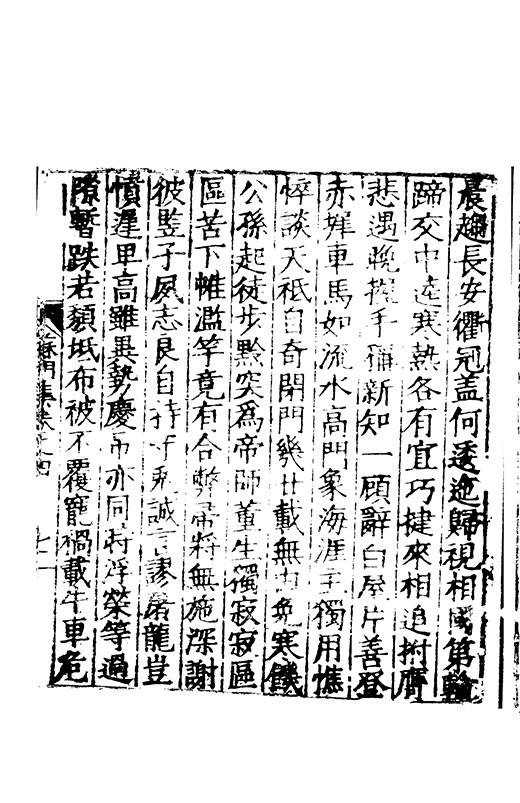 晨趨長安衢冠盖何透迤歸視相國第輪
蹄交中逵寒熱各有宜巧捷來相追拊膺
悲遇晚握手稱新知一顧辭白屋片善登
赤墀車馬如流水高門象海涯主獨用憔
悴談天祗自奇閉門幾廿載無由免寒饑
公孫起徒步黔突為帝師董生獨寂寂區
區苦下帷濫竽竟有合弊帚將無施深謝
彼竪子夙志良自持 誠言謬屠龍豈
憤遲卑高雖異勢慶吊亦同時浮榮等過
隙暫跌若頹坻布被不覆寵禍載牛車危